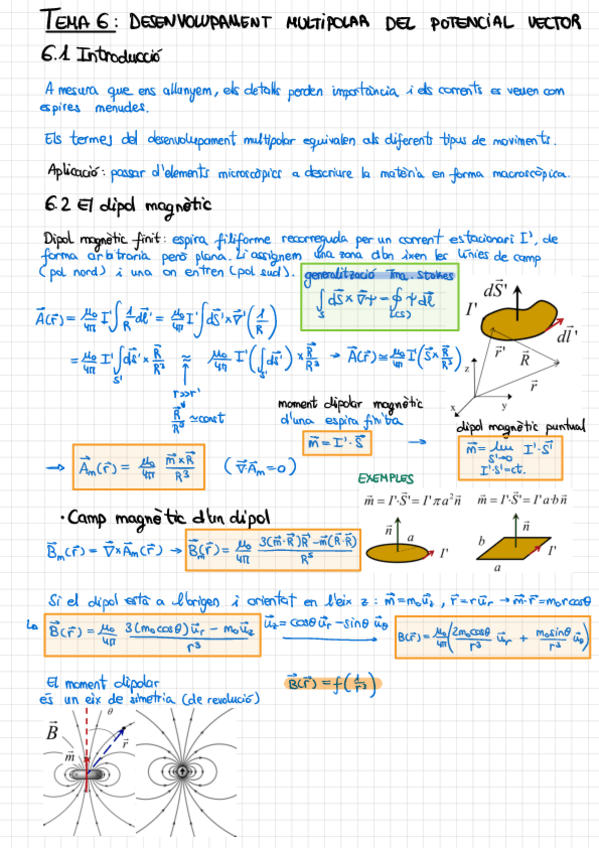 TEMA 6: DESENVOLUPAMENT MULTIPOLAR DEL POTENCIAL VECTOR
6.1 Introducció
A mesura que ens allunyem, els detalls perden importància i els corrents es veuen com
espires menudes.
Els termes del desenvolupament multipolar equivalen als diferents tipus de moviments.
Aplicació: passar d'elements microscòpics a descriure la matèria en forma macroscòpica.
6.2 El dipol magnètic
Dipol magnètic finit: espira filiforme recorreguda per un corrent estacionari I', de
forma arbitraria però plana. Li assignem una zona d'on ixen les línies de camp
(pol nord) i una on entren (pol sud).
generalització Tma. Stokes
∫_S dS⃗ × ∇⃗ψ = ∮_(CS) ψ dl⃗
A⃗(r⃗) = μ₀/4π I' ∫ 1/R dl⃗' = μ₀/4π I' ∫ dS⃗' × ∇⃗' (1/R)
= μ₀/4π I' ∫_S' dS⃗' × R⃗/R³ ≈ μ₀/4π I' (∫ dS⃗') × R⃗/R³ → A⃗(r⃗) ≃ μ₀/4π I' (S⃗ × R⃗/R³)
r>>r'
R⃗/R³ ≃ const
dS⃗'
I'
dl⃗'
r⃗'
R⃗
r⃗
z
x
y
moment dipolar magnètic
d'una espira finita
m⃗ = I' · S⃗'
→
dipol magnètic puntual
m⃗ = lim I' · S⃗'
S'→0
I'·S'=ct.
→ A⃗m(r⃗) = μ₀/4π m⃗×R⃗/R³ (∇⃗A⃗m = 0)
EXEMPLES
m⃗ = I'·S⃗' = I'πa²n⃗
m⃗ = I'·S⃗' = I'a·bn⃗
n⃗
a
I'
n⃗
b
a
I'
· Camp magnètic d'un dipol
B⃗m(r⃗) = ∇⃗×A⃗m(r⃗) → B⃗m(r⃗) = μ₀/4π 3(m⃗·R⃗)R⃗ - m⃗(R⃗·R⃗)/R⁵
Si el dipol està a l'origen i orientat en l'eix z : m⃗=m₀u⃗z , r⃗=ru⃗r → m⃗·r⃗=m₀rcosθ
↳ B⃗(r⃗) = μ₀/4π 3(m₀cosθ)u⃗r - m₀u⃗z/r³
u⃗z = cosθu⃗r - sinθu⃗θ
B(r⃗) = μ₀/4π (2m₀cosθ/r³ u⃗r + m₀sinθ/r³ u⃗θ)
El moment dipolar
és un eix de simetria (de revolució)
B⃗(r⃗) = f(1/r³)
B⃗
θ
r⃗
m⃗